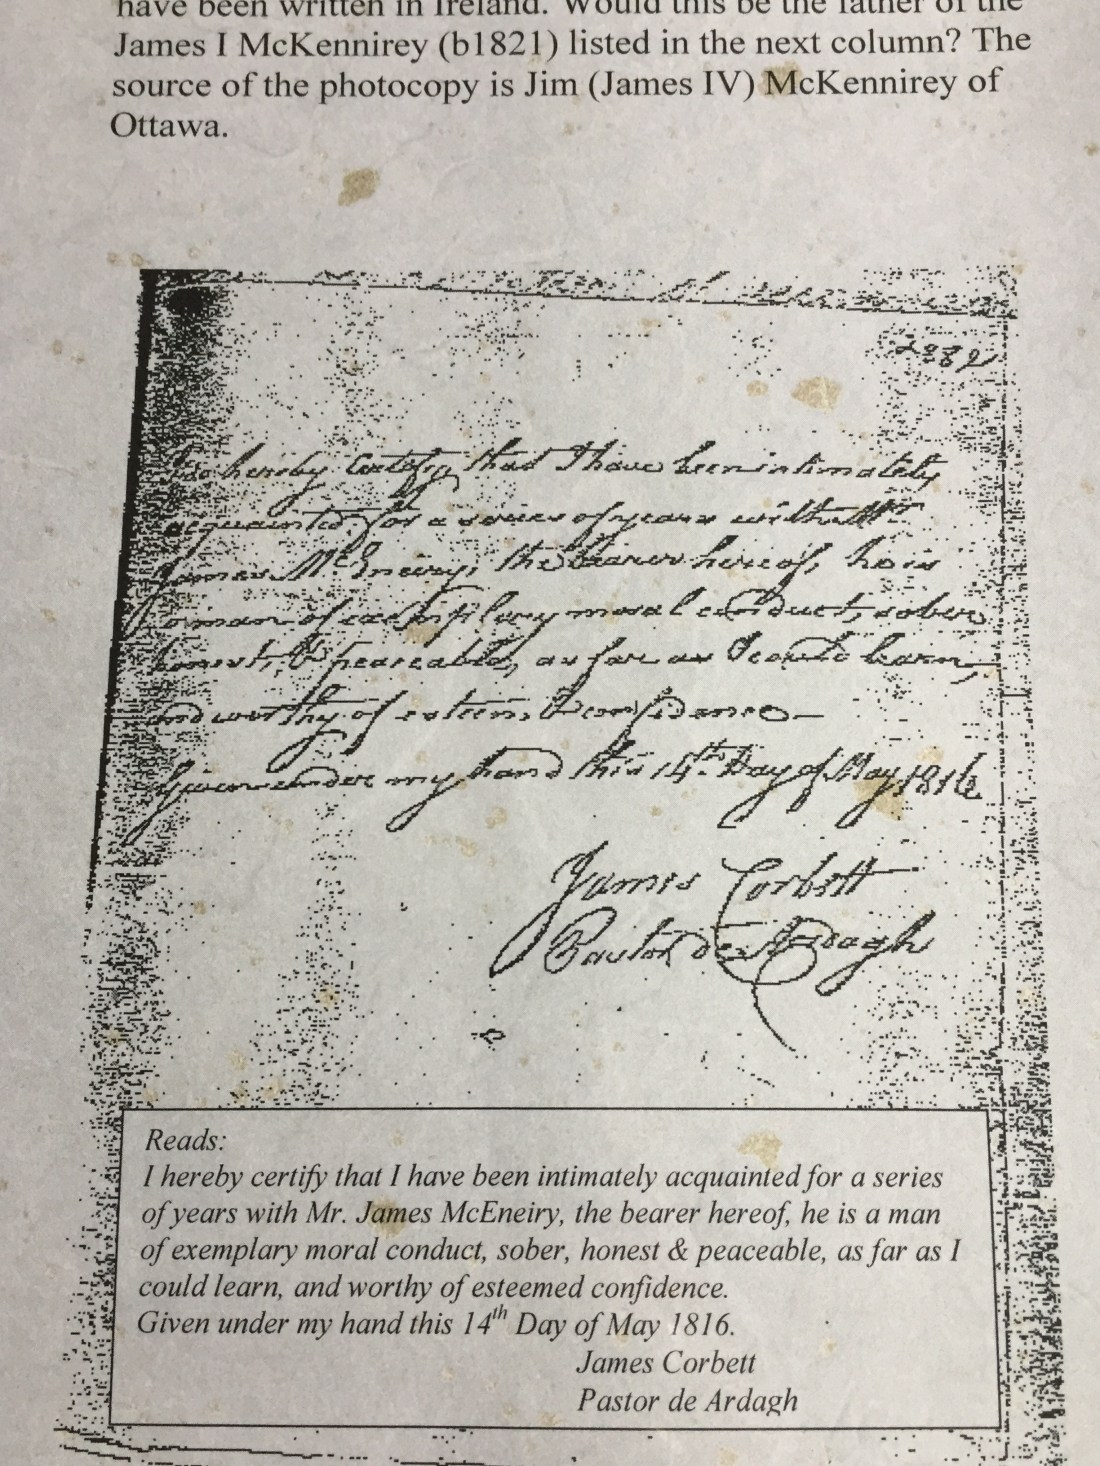 have been written in Ireland. Would this be the father of the
James I McKennirey (b1821) listed in the next column? The
source of the photocopy is Jim (James IV) McKennirey of
Ottawa.
do hereby Certify that I have been intimately
acquainted for a series of years with Mr
James McEneiry, the bearer hereof, he is
a man of exemplary moral conduct, sober
honest, & peaceable, as far as I could learn,
and worthy of esteem & confidence—
Given under my hand this 14th Day of May 1816
James Corbett
Pastor de Ardagh
Reads:
I hereby certify that I have been intimately acquainted for a series
of years with Mr. James McEneiry, the bearer hereof, he is a man
of exemplary moral conduct, sober, honest & peaceable, as far as I
could learn, and worthy of esteemed confidence.
Given under my hand this 14th Day of May 1816.
James Corbett
Pastor de Ardagh